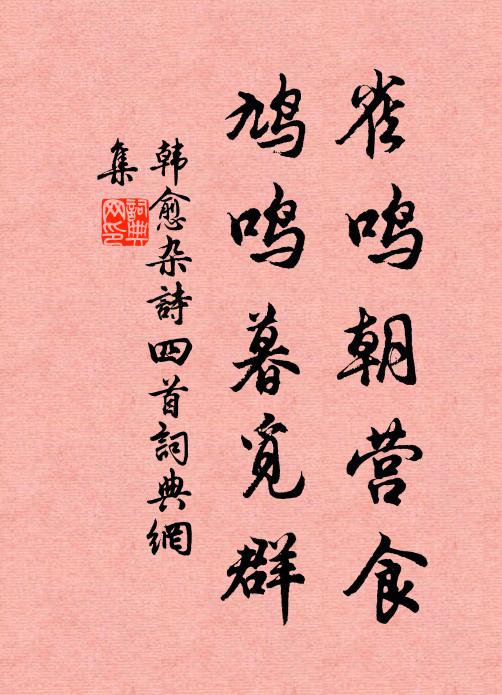 雀鸣朝营食
鸠鸣暮觅群
韩愈杂詩四首詞典網
集
詞典
网印